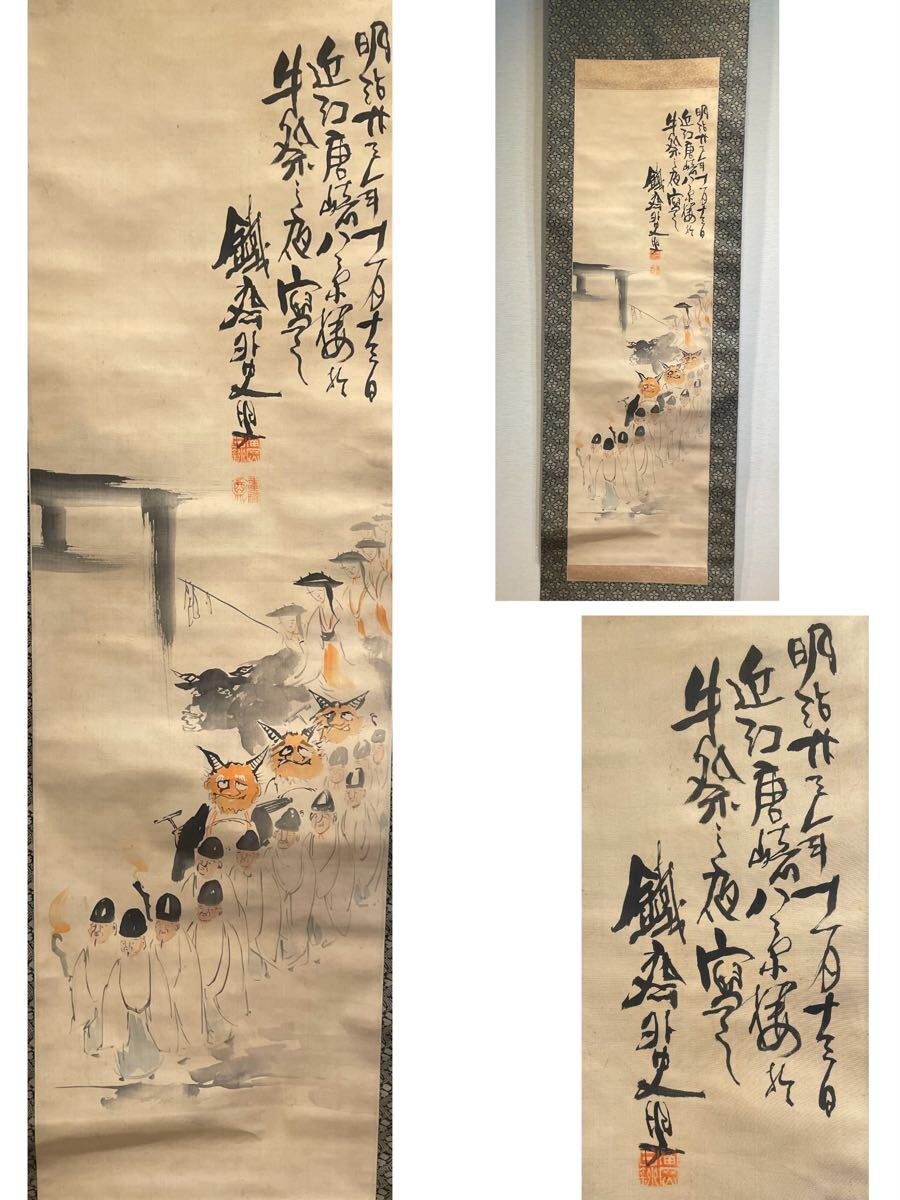 明治廿三年十一月十三日
近江唐崎八景楼於
牛祭之夜寫之
鐵齋外史
明治廿三年十一月十三日
近江唐崎八景楼於
牛祭之夜寫之
鐵齋外史
明治廿三年十一月十三日
近江唐崎八景楼於
牛祭之夜寫之
鐵齋外史